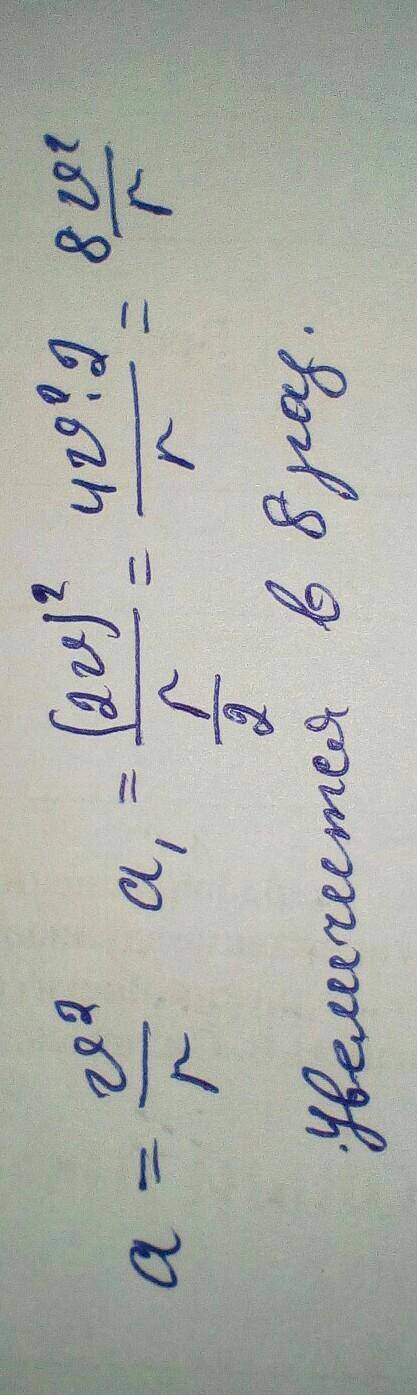 a = v²/r a₁ = (2v)²/(r/2) = 4v²·2/r = 8v²/r
Увеличится в 8 раз.